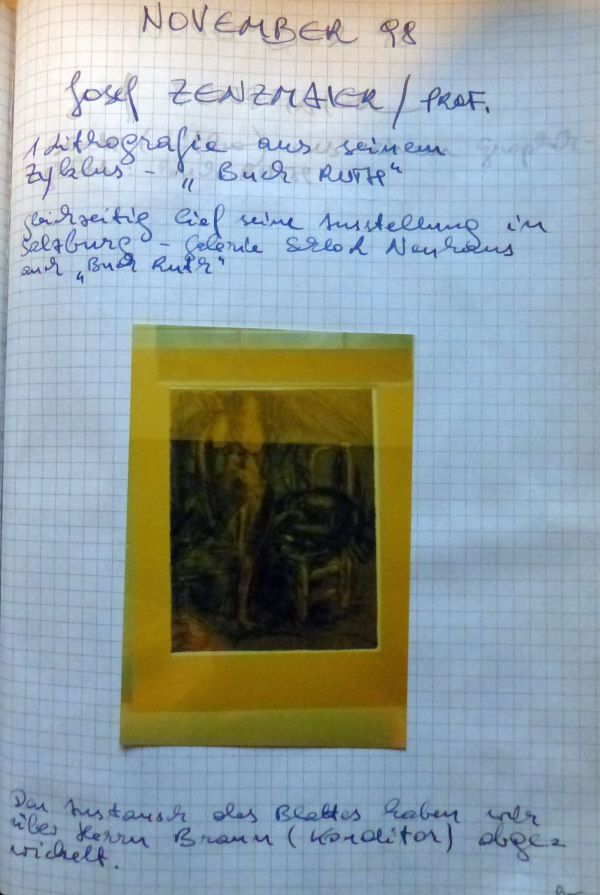 NOVEMBER 98
Josef ZENZMAIER / PROF.
1 Lithografie aus seinem
Zyklus - „Buch RUTH“
gleichzeitig lief seine Ausstellung in
Salzburg - Galerie Schloß Neuhaus
auch „Buch Ruth“
Den Austausch des Blattes haben wir
über Herrn Braun (Konditor) abge=
wickelt.